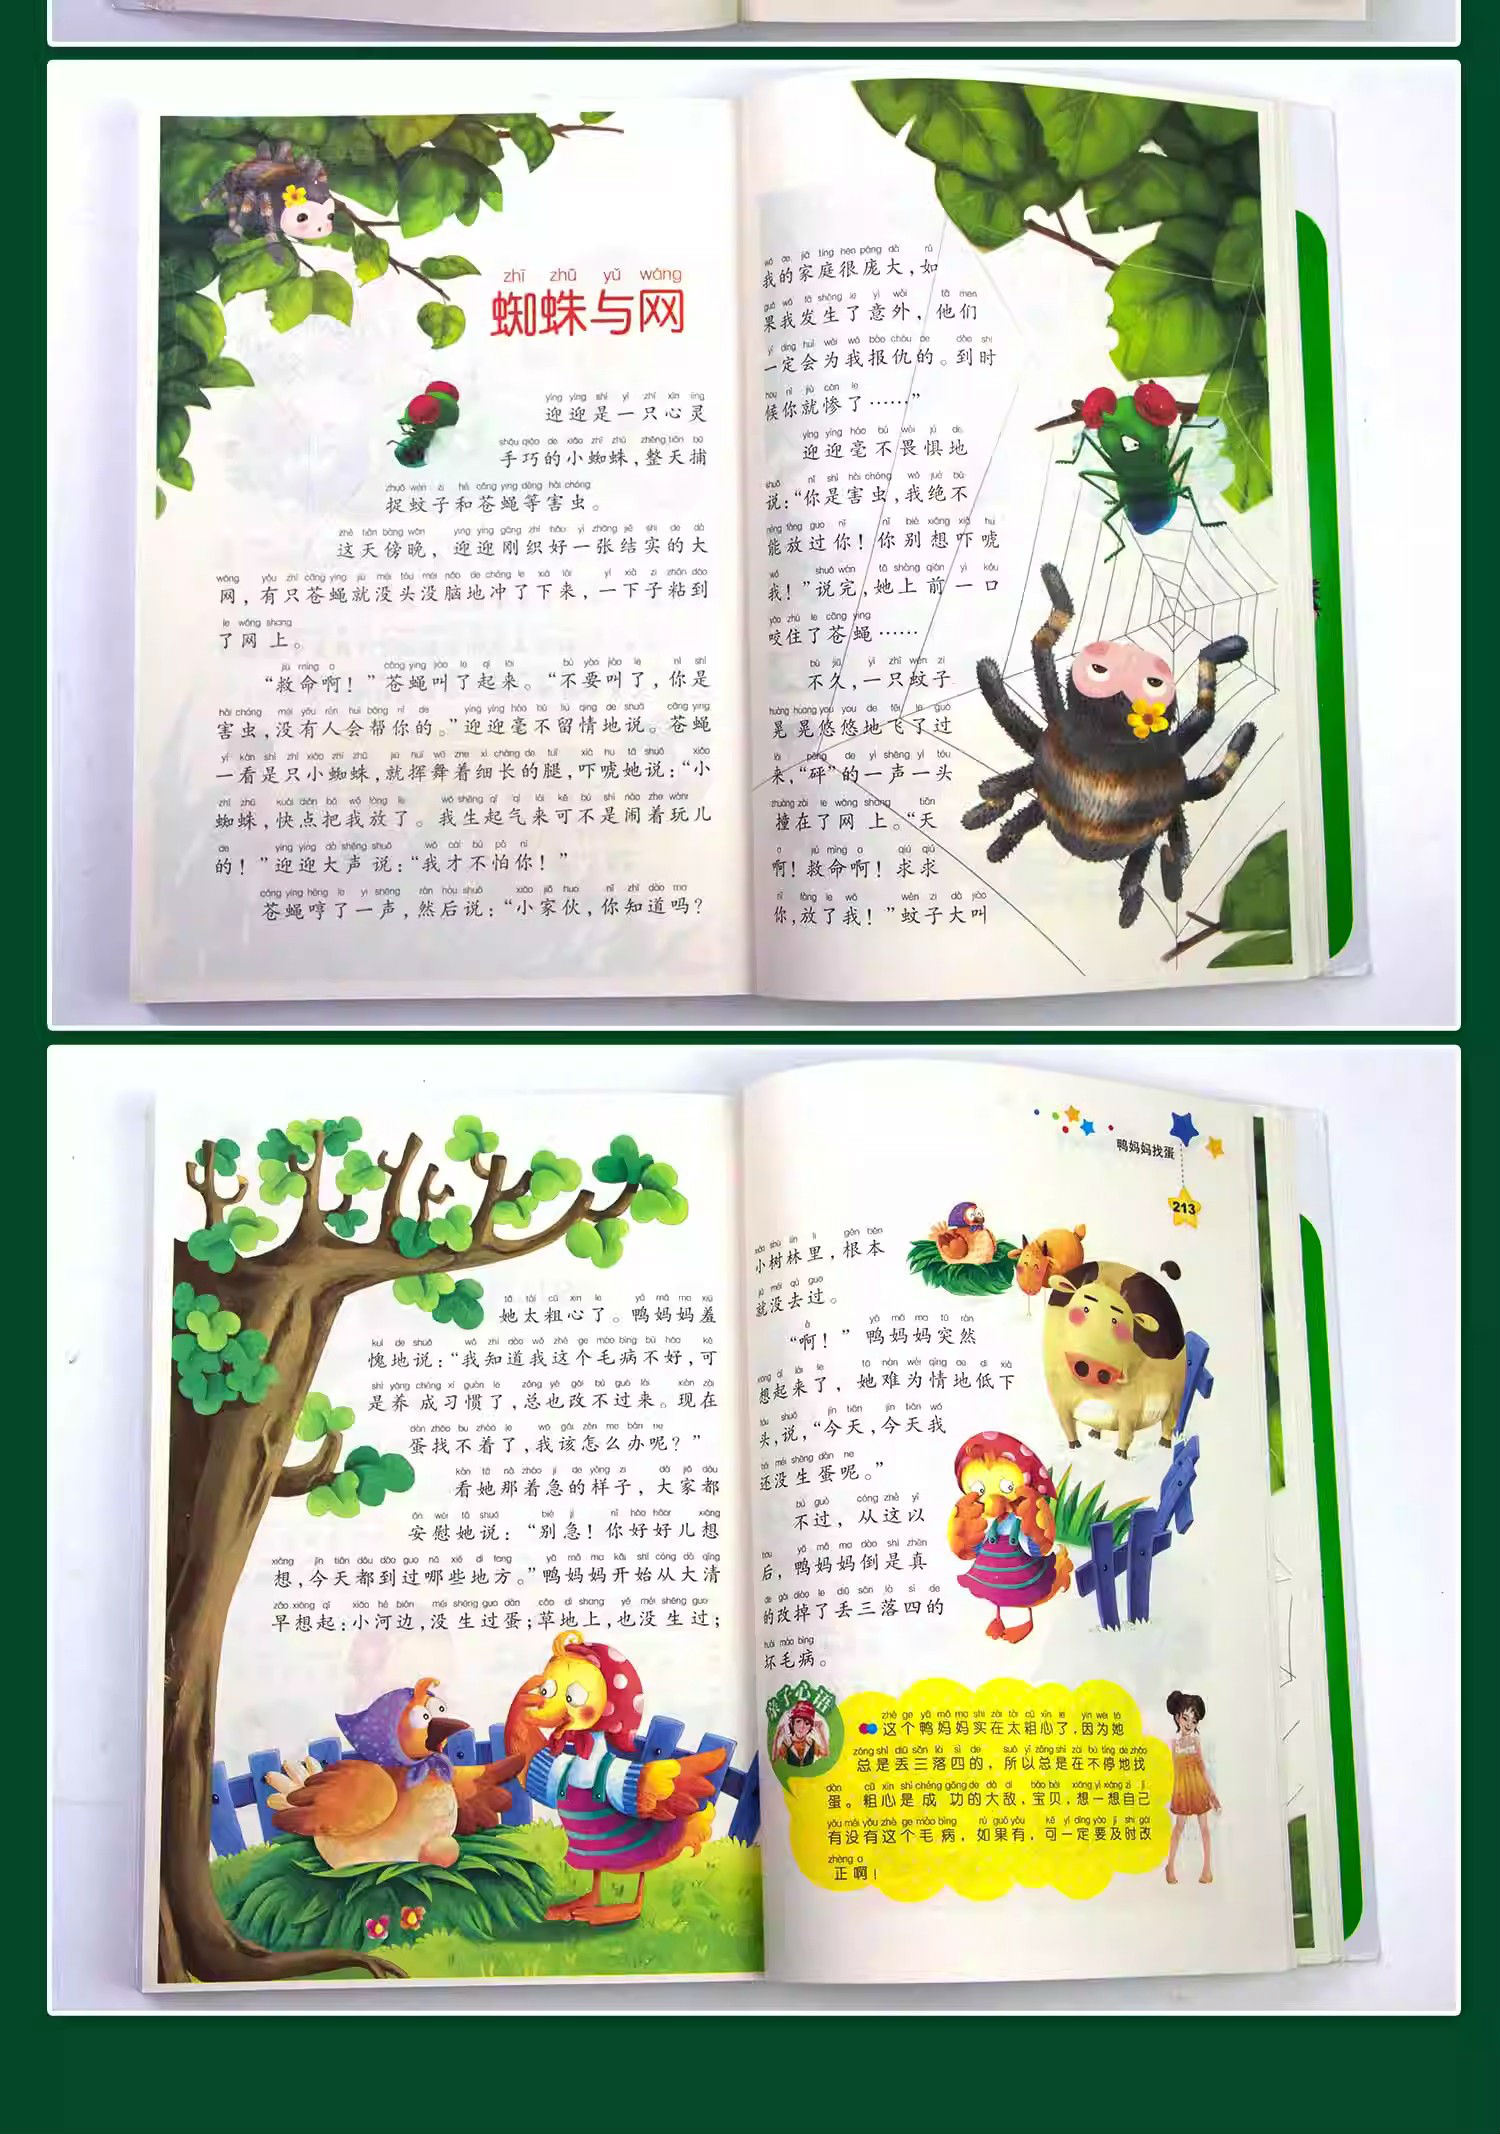 zhī zhū yǔ wǎng
蜘蛛与网
迎迎是一只心灵
手巧的小蜘蛛，整天捕
捉蚊子和苍蝇等害虫。
这天傍晚，迎迎刚织好一张结实的大
网，有只苍蝇就没头没脑地冲了下来，一下子粘到
了网上。
“救命啊！”苍蝇叫了起来。“不要叫了，你是
害虫，没有人会帮你的。”迎迎毫不留情地说。苍蝇
一看是只小蜘蛛，就挥舞着细长的腿，吓唬她说：“小
蜘蛛，快点把我放了。我生起气来可不是闹着玩儿
的！”迎迎大声说：“我才不怕你！”
苍蝇哼了一声，然后说：“小家伙，你知道吗？
我的家庭很庞大，如
果我发生了意外，他们
一定会为我报仇的。到时
候你就惨了……”
迎迎毫不畏惧地
说：“你是害虫，我绝不
能放过你！你别想吓唬
我！”说完，她上前一口
咬住了苍蝇……
不久，一只蚊子
晃晃悠悠地飞了过
来，“砰”的一声一头
撞在了网上。“天
啊！救命啊！求求
你，放了我！”蚊子大叫
她太粗心了。鸭妈妈羞
愧地说：“我知道我这个毛病不好，可
是养成习惯了，总也改不过来。现在
蛋找不着了，我该怎么办呢？”
看她那着急的样子，大家都
安慰她说：“别急！你好好儿想
想，今天都到过哪些地方。”鸭妈妈开始从大清
早想起：小河边，没生过蛋；草地上，也没生过；
鸭妈妈找蛋
213
小树林里，根本
就没去过。
“啊！”鸭妈妈突然
想起来了，她难为情地低下
头，说，“今天，今天我
还没生蛋呢。”
不过，从这以
后，鸭妈妈倒是真
的改掉了丢三落四的
坏毛病。
亲子心语
这个鸭妈妈实在太粗心了，因为她
总是丢三落四的，所以总是在不停地找
蛋。粗心是成功的大敌，宝贝，想一想自己
有没有这个毛病，如果有，可一定要及时改
正啊！